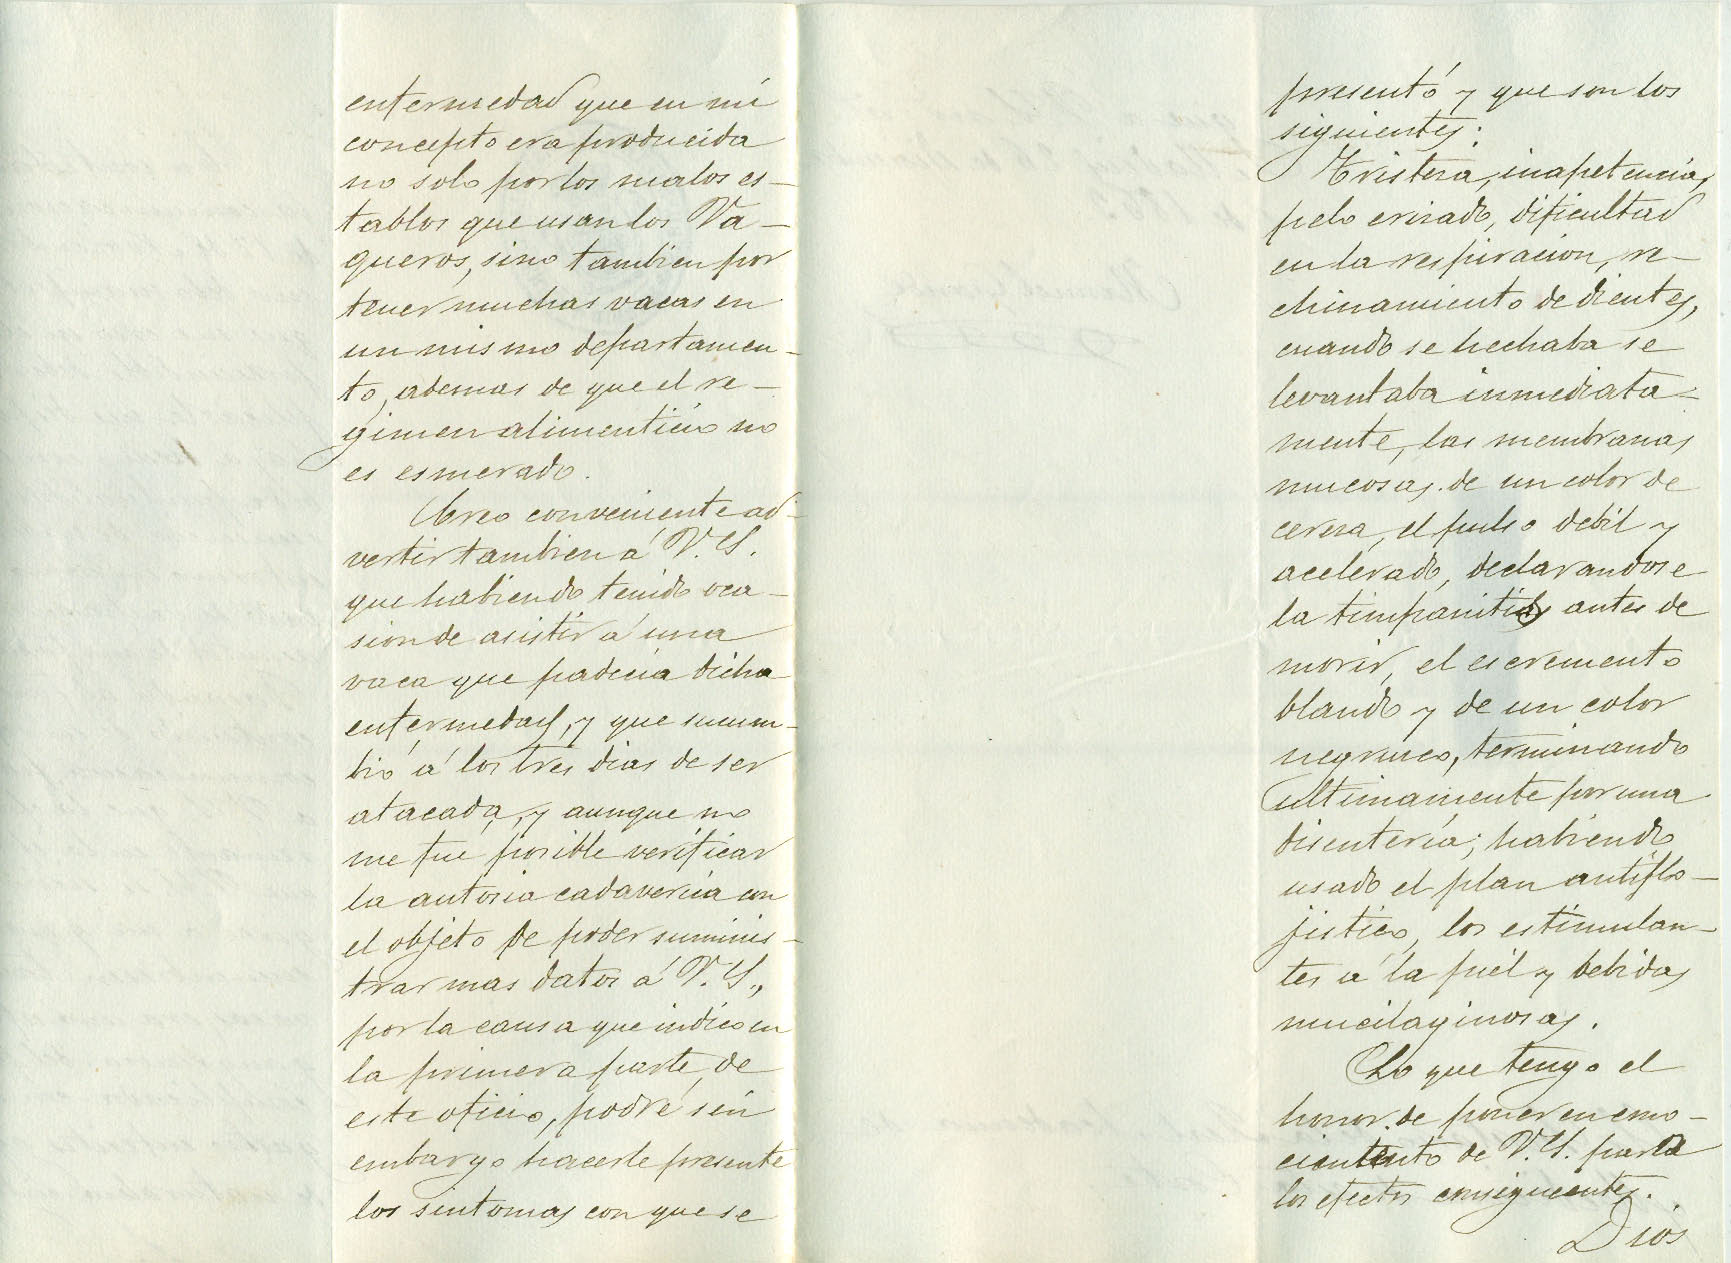 enfermedad que en mi
concepto era producida
no solo por los malos es-
tablos que usan los Va-
queros, sino tambien por
tener muchas vacas en
un mismo departamen-
to, ademas de que el re-
gimen alimenticio no
es esmerado.
Creo conveniente ad-
vertir tambien á V.S.
que habiendo tenido oca-
sion de asistir á una
vaca que padecia dicha
enfermedad, y que sucum-
bió á los tres dias de ser
atacada, y aunque no
me fue posible verificar
la autosia cadaverica con
el objeto de poder suminis-
trar mas datos á V.S.,
por la causa que indico en
la primera parte de
este oficio, podré sin
embargo hacerle presente
los sintomas con que se
presentó y que son los
siguientes:
Tristeza, inapetencia,
pelo erizado, dificultad
en la respiracion, re-
chinamiento de dientes,
cuando se hechaba se
levantaba inmediata-
mente, las membranas
mucosas de un color de
cereza, el pulso debil y
acelerado, declarandose
la timpanitis antes de
morir, el escremento
blando y de un color
negruzco, terminando
ultimamente por una
disentería; habiendo
usado el plan antiflo-
jistico, los estimulan-
tes á la piel y bebidas
mucilaginosas.
Lo que tengo el
honor de poner en cono-
cimiento de V.S. para
los efectos consiguientes.
Dios